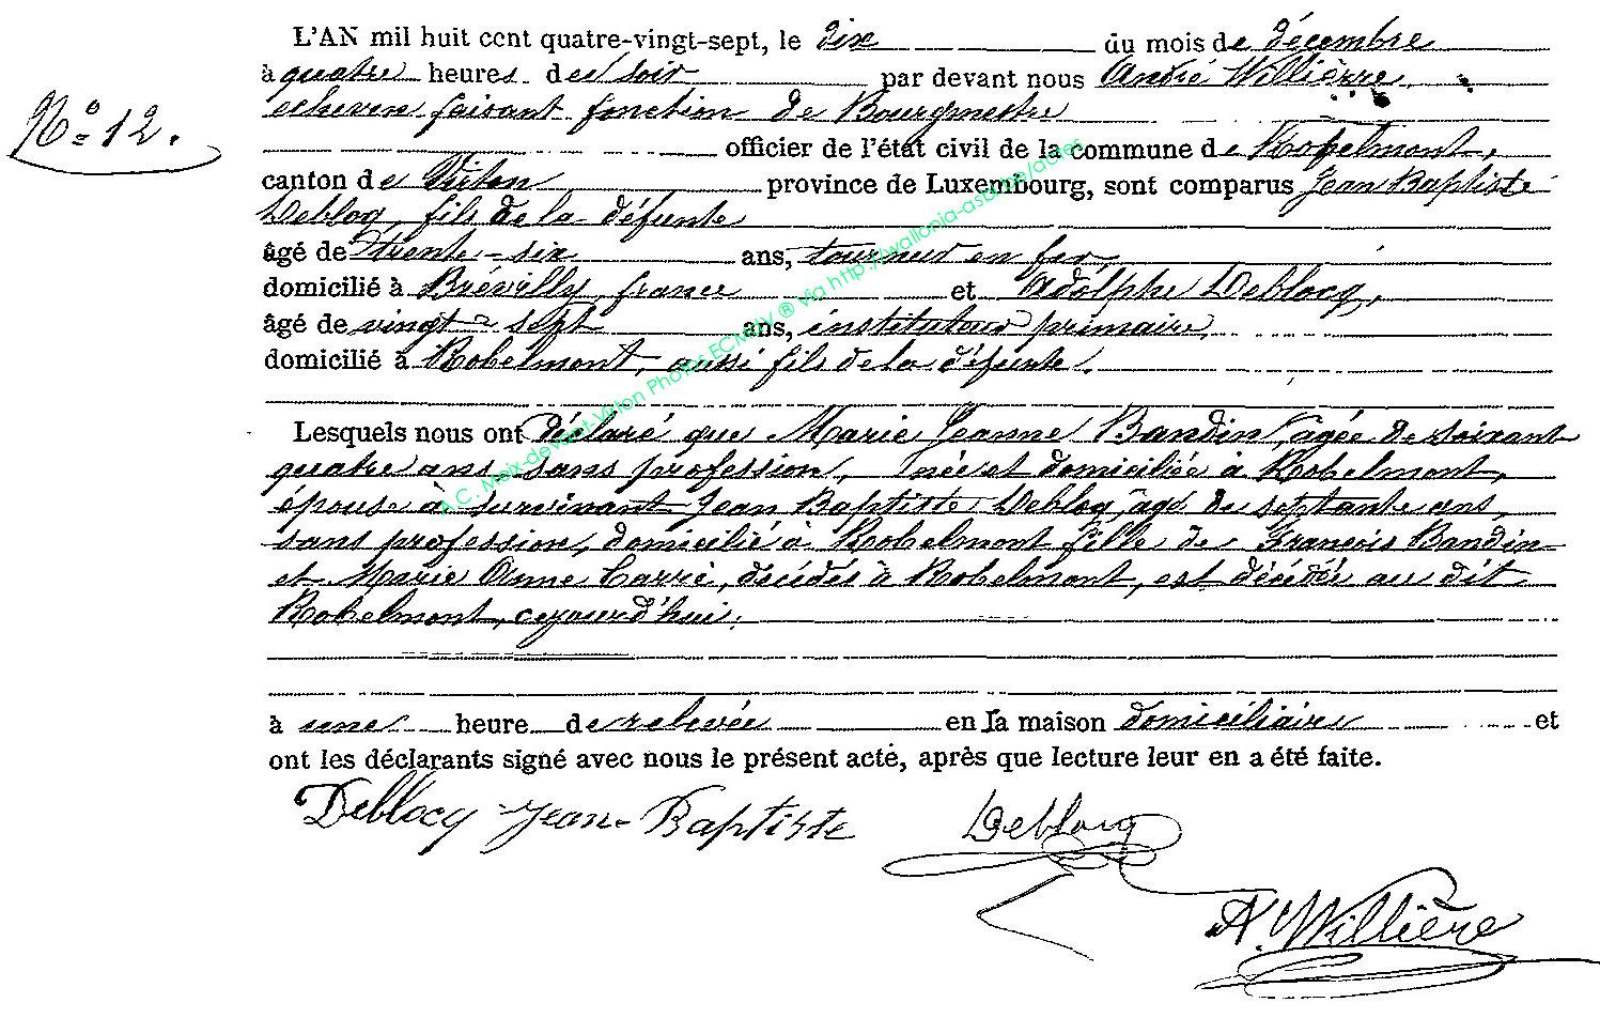 L'AN mil huit cent quatre-vingt-sept, le dix du mois de décembre
à quatre heures de soir par devant nous André Willièrre
echeven faisant fonction de Bourgmestre
N° 12.
officier de l'état civil de la commune de Robelmont,
canton de Virton province de Luxembourg, sont comparus Jean Baptiste
Deblocq, fils de la défunte
âgé de trente-six ans, tourneur en fer,
domicilié à Brévilly, france et Adolphe Deblocq,
âgé de vingt-sept ans, instituteur primaire,
domicilié à Robelmont, aussi fils de la défunte.
Lesquels nous ont déclaré que Marie Jeanne Bandin, agée de soixant
quatre ans, sans profession, née et domiciliée à Robelmont,
épouse à survivant Jean Baptiste Deblocq, agé de septante ans,
sans profession, domicilié à Robelmont fille de François Bandin
et Marie Anne Carré, décédés à Robelmont, est décédée au dit
Robelmont, cejourd'hui.
à une heure de relevée en la maison domiciliaire et
ont les déclarants signé avec nous le présent acte, après que lecture leur en a été faite.
Deblocq Jean-Baptiste Deblocq
A. Willière
A.C. Meix-devant-Virton Photos ECMDV ® via http://wallonia-asbl.be/actes